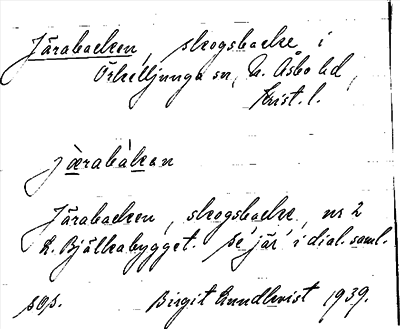 Järabacken, skogsbacke i
Örkelljunga sn, N. Åsbo hd,
Krist. l.
jæ̀rabákan
Järabacken, skogsbacke, nr 2
L. Bjälkabygget. Se 'jär' i dial. saml.
sOs. Birgit Rundkvist 1939.